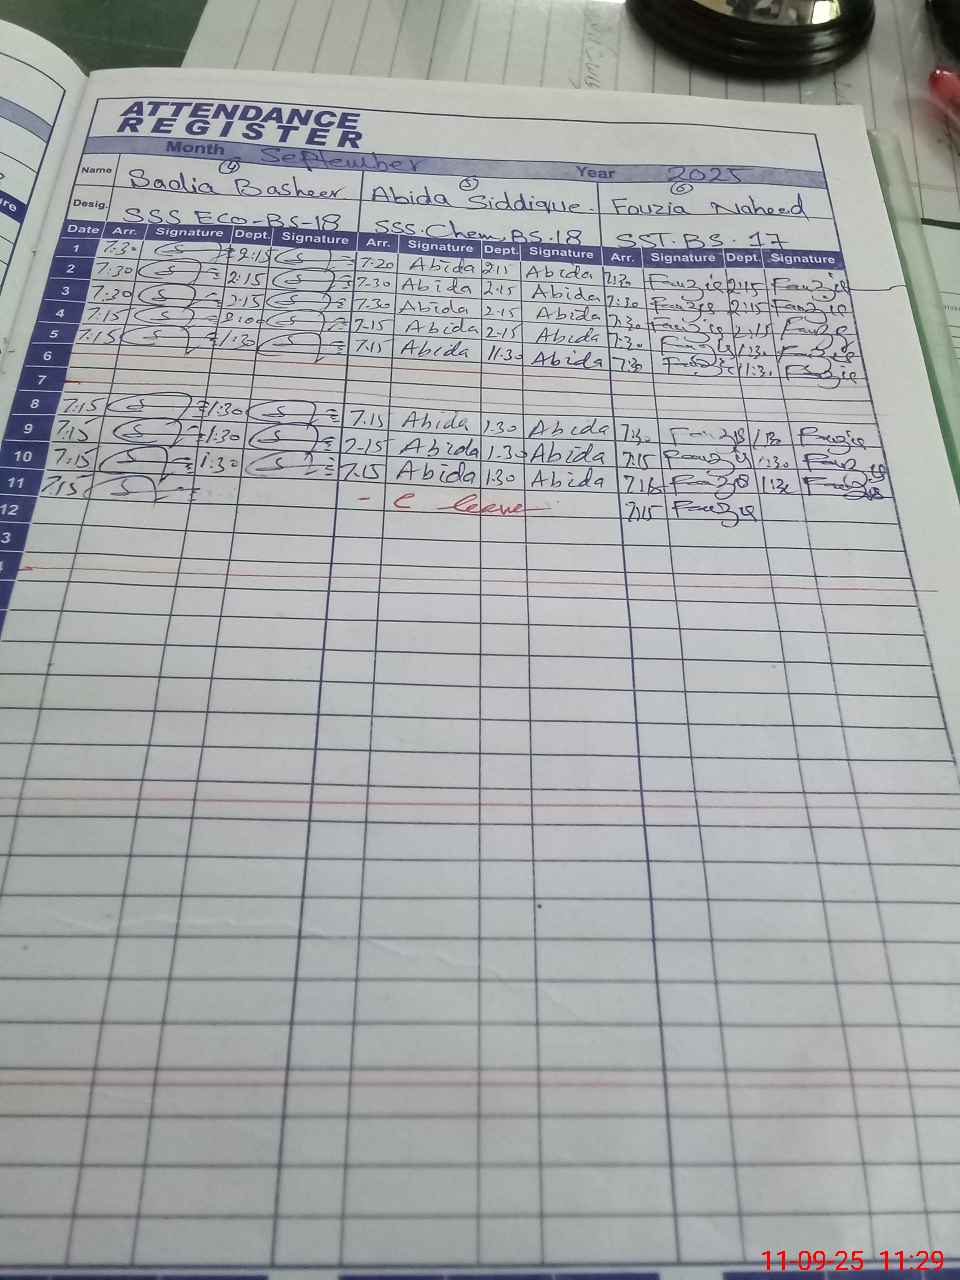 ATTENDANCE
REGISTER
Month September Year 2025
Name Sadia Basheer Abida Siddique. Fouzia Naheed
4 5 6
Desig. SSS Eco-BS-18 SSS.Chem.BS.18 SST.BS.17
Date Arr. Signature Dept. Signature Arr. Signature Dept. Signature Arr. Signature Dept. Signature
1 7:30 2:15 7:20 Abida 2:15 Abida 7:30 Fauzie 2:15 Fauzie
2 7:30 2:15 7:30 Abida 2:15 Abida 7:30 Fauzie 2:15 Fauzie
3 7:30 2:15 7:30 Abida 2:15 Abida 7:30 Fauzie 2:15 Fauzie
4 7:15 2:00 7:15 Abida 2-15 Abida 7:30 Fauzie 1:30 Fauzie
5 7:15 1:30 7:15 Abida 11:30 Abida 7:30 Fauzie 11:30 Fauzie
6
7
8 7:15 1:30 7:15 Abida 1:30 Abida 7:30 Fauzie 1:30 Fauzie
9 7:15 1:30 7-15 Abida 1-30 Abida 7:15 Fauzie 1:30 Fauzie
10 7:15 1:30 7:15 Abida 1:30 Abida 7:15 Fauzie 1:30 Fauzie
11 7:15 - C leave 7:15 Fauzie
12
3
4
11-09-25 11:29